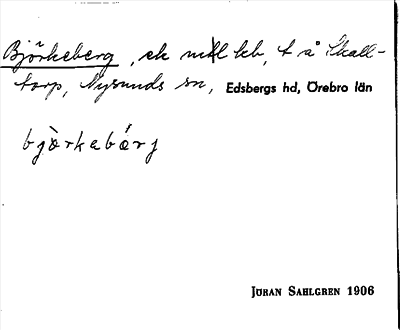 Björkeberg, sk mtl lhb, t å Skall-
torp, Nysunds sn, Edsbergs hd, Örebro län
bjòrkabǽrj
JÖRAN SAHLGREN 1906